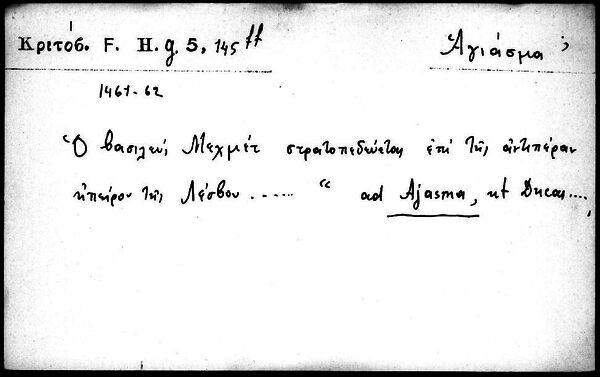 Κριτόβ. F. H. g. 5, 145 ff
Ἁγιάσμα
1461-62
Ὁ βασιλεὺς Μεχμέτ στρατοπεδεύεται ἐπὶ τῆς ἀντιπέραν
ἠπείρου τῆς Λέσβου ..... " ad Ajasma, ut Ducas....,